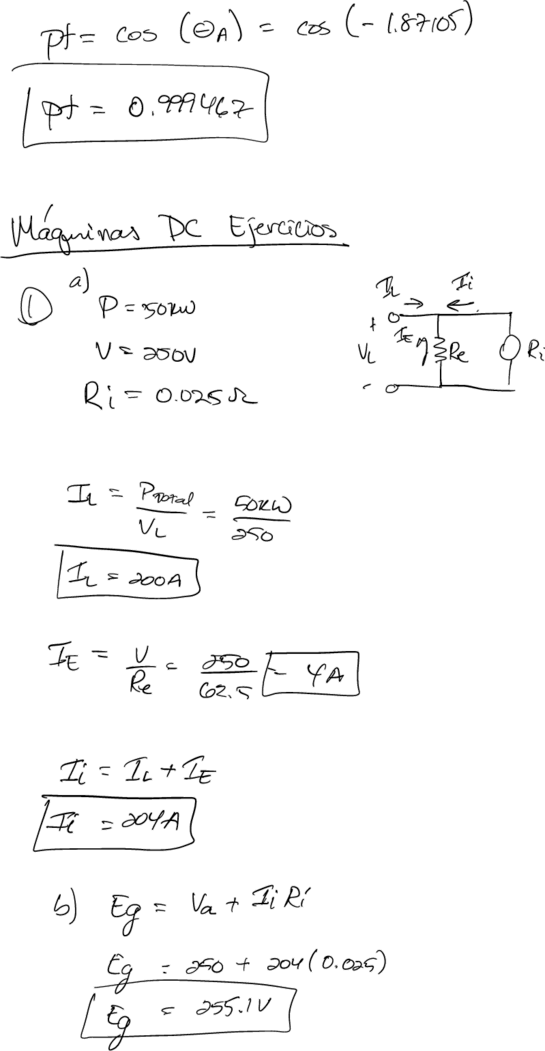 pf = cos (θA) = cos (-1.87105)
pf = 0.999467
Máquinas DC Ejercicios
① a)
P = 50kW
V = 250V
Ri = 0.025Ω
IL Ii
+ IE Re Ri
VL
-
IL = PTotal / VL = 50kW / 250
IL = 200A
IE = V / Re = 250 / 62.5 = 4A
Ii = IL + IE
Ii = 204A
b) Eg = Va + Ii Ri
Eg = 250 + 204(0.025)
Eg = 255.1V